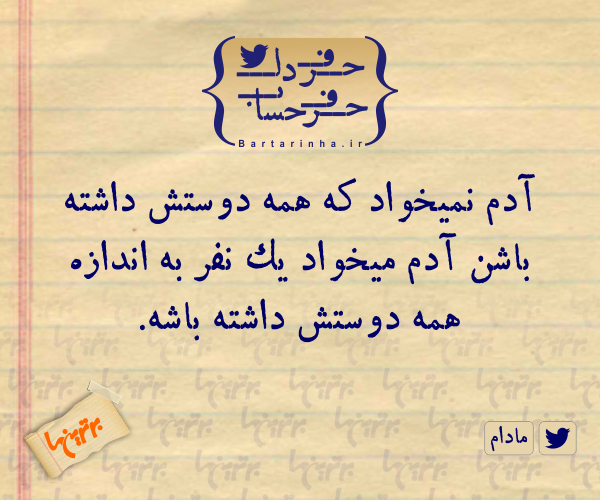 حرف دل
حرف حساب
Bartarinha.ir
آدم نميخواد كه همه دوستش داشته
باشن آدم ميخواد يك نفر به اندازه
همه دوستش داشته باشه.
مادام
برترین‌ها